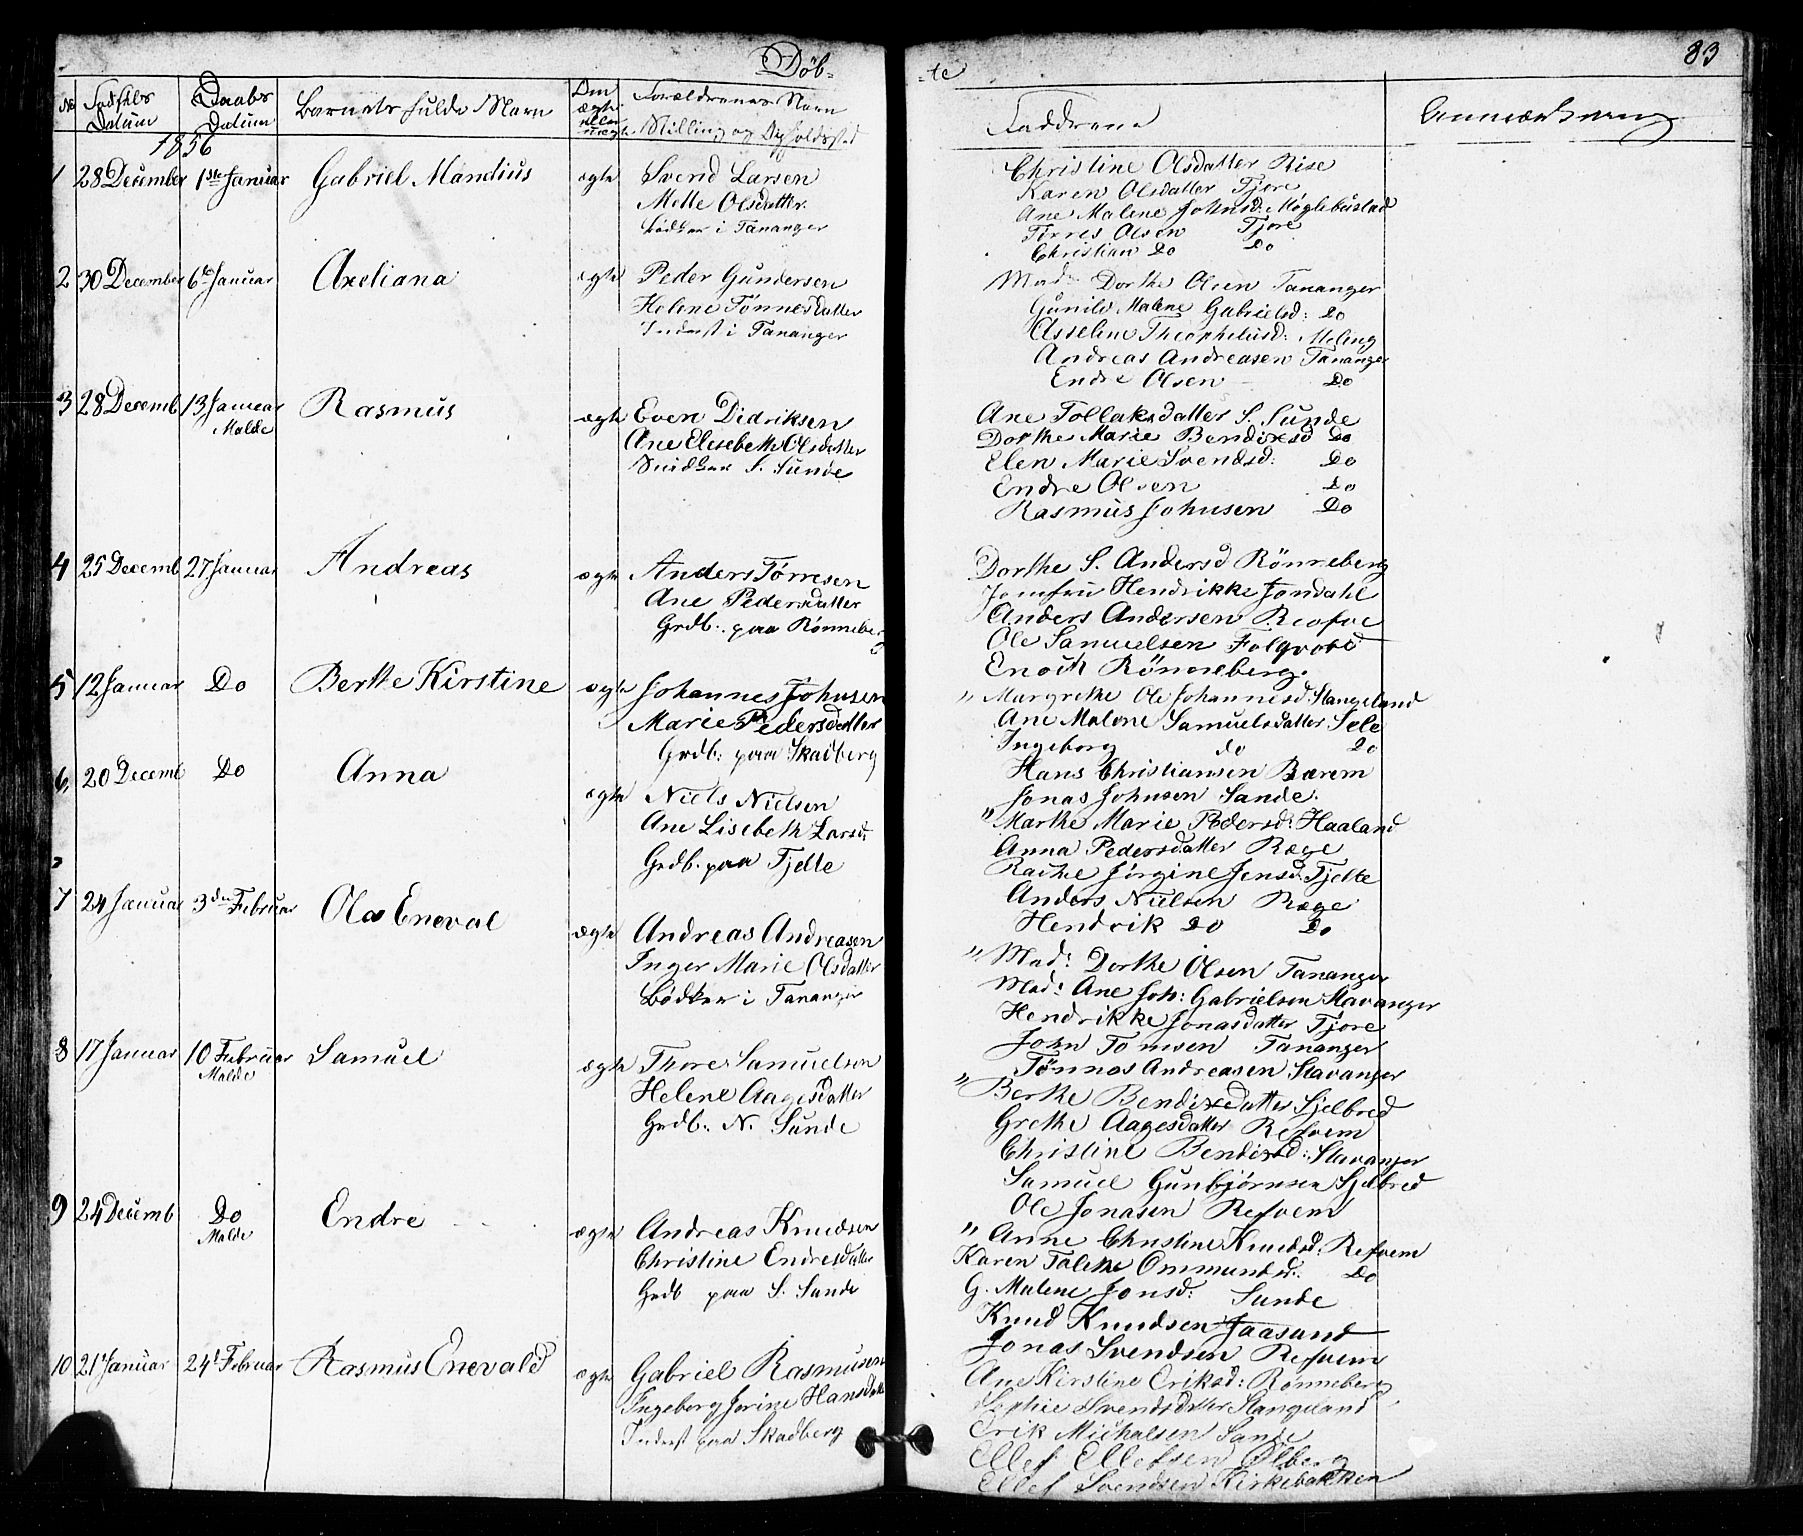 Döb-
-te
83
No
Fødsels Datum
Daabs Datum
Barnets fulde Navn
Om ægte eller uægte
Forældrenes Navn Stilling og Opholdssted
Fadderne
Anmærkning
1856
1 28 December 1ste Januar Gabriel Mandius ægte Svend Larsen
Mette Olsdatter
Bödker i Tananger
Christine Olsdatter Rise
Karen Olsdatter Tjore
Ane Malene Johnsd: Møglebustad
Törres Olsen Tjore
Christian Do Do
2 30 December 6te Januar Axeliana ægte Peder Gundersen
Helene Tönnesdatter
Inderst i Tananger
Mad: Dorthe Olsen Tananger
Gunild Malene Gabrielsd: Do
Asseline Theophelusd: Meling
Andreas Andreasen Tananger
Endre Olsen Do
3 28 Decemb 13 Januar Rasmus ægte Even Didriksen
Malde
Ane Elesebeth Olsdatter
Snidker S. Sunde
Ane Tollaksdatter S. Sunde
Dorthe Marie Bendixsd Do
Elen Marie Svendsd: Do
Endre Olsen Do
Rasmus Johnsen Do
4 25 Decemb 27 Januar Andreas ægte Anders Törresen
Ane Pedersdatter
Grdb. paa Rönneberg
Dorthe S. Andersd Rönneberg
Jomfru Hendrikke Jondahl
Anders Andersen
Ole Samuelsen
Enoch Rönneberg.
5 12 Januar Do Berthe Kirstine ægte Johannes Johnsen
Marie Pedersdatter
Grdb: paa Skadberg
" Margrethe Ole Johannesd: Stangeland
Ane Malene Samuelsdatter Sele
Ingeborg do Do
Hans Christiansen Bærem
Jonas Johnsen Sande.
6. 20 Decemb Do Anna ægte Niels Nielsen
Ane Lisebeth Larsd:
Grdb. paa Tjelte
" Marthe Marie Pedersd: Haaland
Anna Pedersdatter Ræge
Rachel Jörgine Jensd: Tjelte
Anders Nielsen Ræge
Hendrik Do Do
7 24 Januar 3den Februar Ola Eneval ægte Andreas Andreasen
Inger Marie Olsdatter
Bödker i Tananger
" Mad: Dorthe Olsen Tananger
Mad: Ane Joh: Gabrielsen Stavanger
Hendrikke Jonasdatter Tjore
John Tomsen Tananger
Tönnes Andreasen Stavanger
8 17 Januar 10 Februar Samuel ægte Thore Samuelson
Malde
Helene Aagesdatter
Grdb. N. Sunde
" Berthe Bendixsdatter Sjelbred
Grethe Aagesdatter Refvem
Christine Bendixsd: Stavanger
Samuel Gunbjörnsen Sjelbred
Ole Jonasen Refvem
9 24 Decemb Do Endre ægte Andreas Knudsen
Malde
Christine Endresdatter
Grdb paa S. Sunde
" Anne Christine Knudsd: Refvem
Karen Talette Ommundsd: Do
G. Malene Jonsd: Sunde
Knud Knudsen Jaasund
Jonas Svendsen Refvem
10 21 Januar 24 Februar Rasmus Enevald ægte Gabriel Rasmusen
Ingeborg Jorine Hansdatter
Inderst paa Skadberg
Ane Kirstine Eriksd: Rönneberg
Sophie Svendsdatter Stangeland
Erik Michalsen Sande
Ellef Ellefsen Ölberg
Ellef Svendsen Kirkebakken